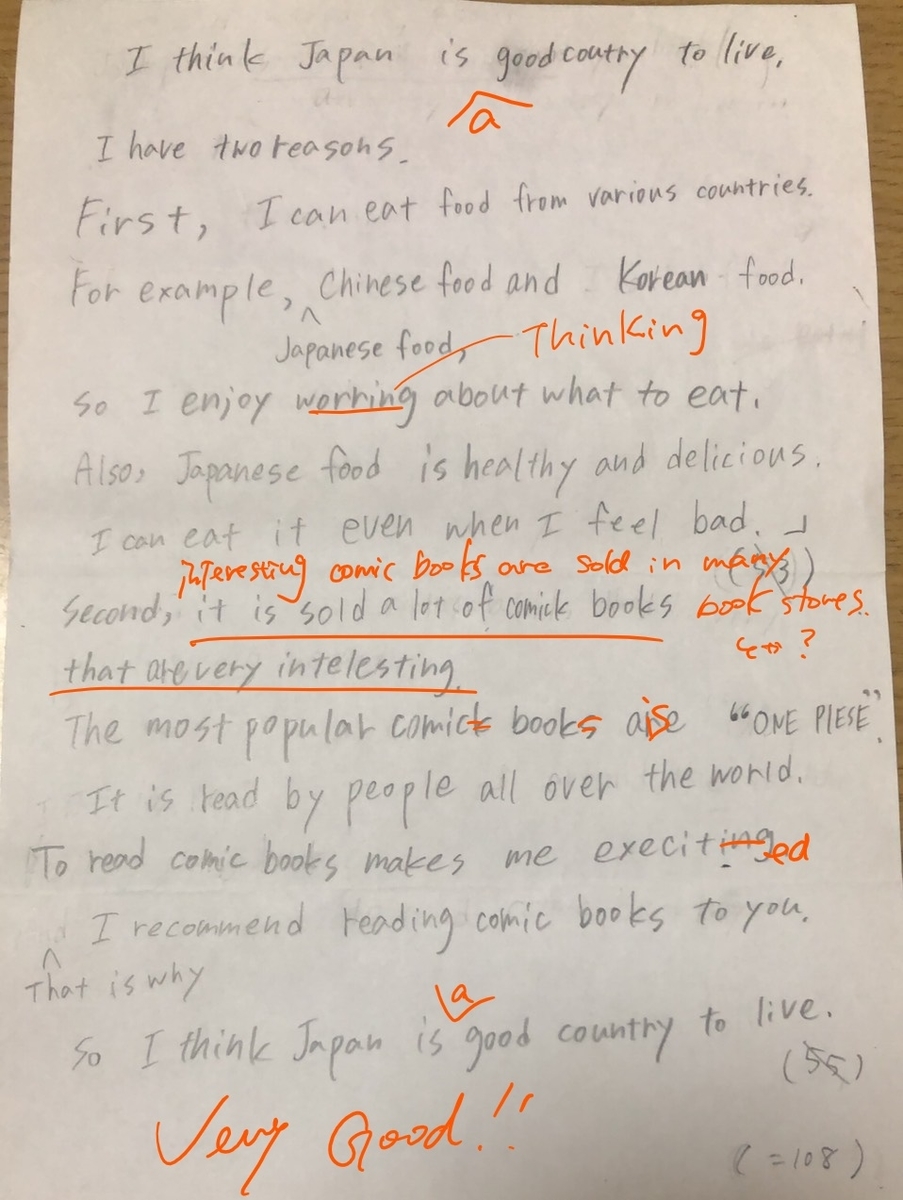 I think Japan is good coutry to live.
a
I have two reasons.
First, I can eat food from various countries.
For example, Chinese food and Korean food.
Japanese food,
Thinking
So I enjoy worring about what to eat.
Also, Japanese food is healthy and delicious.
I can eat it even when I feel bad.
interesting comic books are sold in many
(53)
Second, it is sold a lot of comick books book stores.
that are very intelesting.
?
The most popular comick books are is "ONE PIESE".
It is read by people all over the world.
To read comic books makes me execiting ed
I recommend reading comic books to you.
That is why
a
So I think Japan is good country to live.
(55)
Very Good!!
(=108)